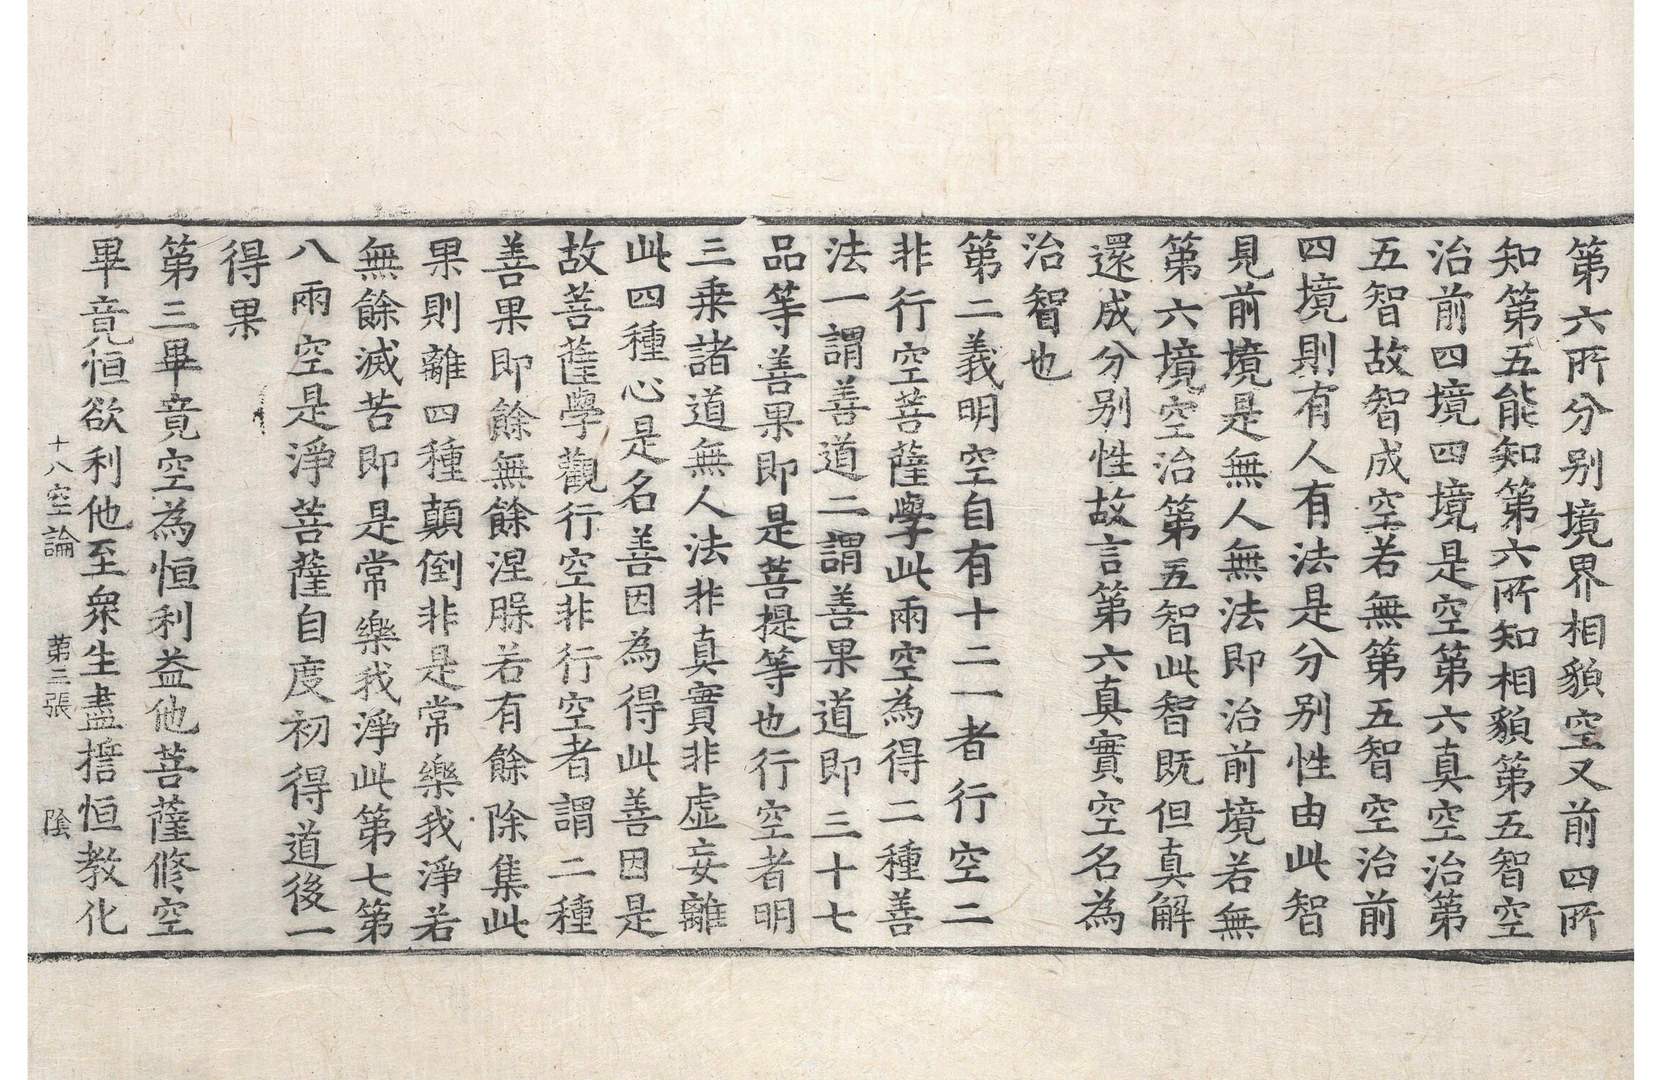 第六所分别境界相貌空又前四所
知第五能知第六所知相貌第五智空
治前四境四境是空第六真空治第
五智故智成空若無第五智空治前
四境則有人有法是分别性由此智
見前境是無人無法即治前境若無
第六境空治第五智此智既但真解
還成分别性故言第六真實空名為
治智也
第二義明空自有十二一者行空二
非行空菩薩學此兩空為得二種善
法一謂善道二謂善果道即三十七
品等善果即是菩提等也行空者明
三乗諸道無人法非真實非虚妄離
此四種心是名善因為得此善因是
故菩薩學觀行空非行空者謂二種
善果即餘無餘涅槃若有餘除集此
果則離四種顛倒非是常樂我淨若
無餘滅苦即是常樂我淨此第七第
八兩空是淨菩薩自度初得道後一
得果
第三畢竟空為恒利益他菩薩修空
畢竟恒欲利他至衆生盡誓恒教化
十八空論　第三張　陰